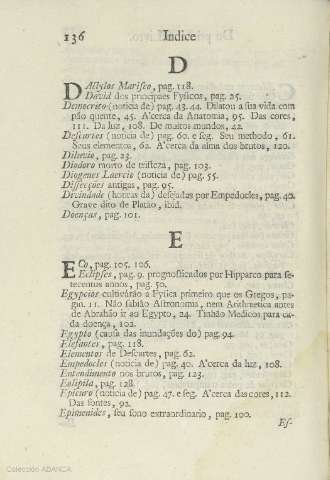 136 Indice
D
DActylos Marisco, pag. 118.
David dos principaes Fysicos, pag. 25.
Democrito (noticia de) pag. 43. 44. Dilatou a sua vida com
pão quente, 45. A'cerca da Anatomia, 95. Das cores,
111. Da luz, 108. De muitos mundos, 42.
Descartes (noticia de) pag. 60. e seg. Seu methodo, 61.
Seus elementos, 62. A'cerca da alma dos brutos, 120.
Diluvio, pag. 23.
Diodoro morto de tristeza, pag. 103.
Diogenes Laercio (noticia de) pag. 55.
Dissecções antigas, pag. 95.
Divindade (honras da) desejadas por Empedocles, pag. 40.
Grave dito de Platão, ibid.
Doenças, pag. 101.
E
ECo, pag. 105. 106.
Eclipses, pag. 9. prognosticados por Hipparco para se-
tecentos annos, pag. 50.
Egypcios cultivárão a Fysica primeiro que os Gregos, pa-
gin. 11. Não sabião Astronomia, nem Arithmetica antes
de Abrahão ir ao Egypto, 24. Tinhão Medicos para ca-
da doença, 102.
Egypto (causa das inundações do) pag. 94.
Elefantes, pag. 118.
Elementos de Descartes, pag. 62.
Empedocles (noticia de) pag. 40. A'cerca da luz, 108.
Entendimento nos brutos, pag. 123.
Eolipila, pag. 128.
Epicuro (noticia de) pag. 47. e seg. A'cerca das cores, 112.
Das fontes, 92.
Epimenides, seu sono extraordinario, pag. 100.
Es-
Colección ABANCA